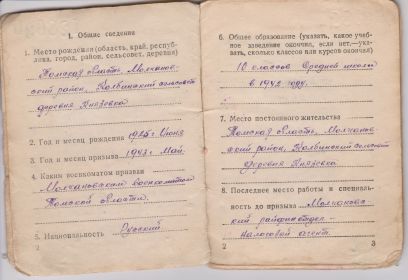 1. Общие сведения
1. Место рождения (область, край, респуб-
лика, город, район, сельсовет, деревня)
Томская область, Молчанов-
ский район, Колбинский сельсовет
деревня Князевка
2. Год и месяц рождения 1925 г. Июня
3. Год и месяц призыва 1943 г. Май.
4. Каким военкоматом призван
Молчановским военкоматом
Томской области.
5. Национальность Русский
2
6. Общее образование (указать, какое учеб-
ное заведение окончил, если нет,—ука-
зать, сколько классов или курсов окончил)
10 классов Средней школы
в 1942 году.
7. Место постоянного жительства
Томская область, Молчанов-
ский район, Колбинский сельсовет
деревня Князевка
8. Последнее место работы и специаль-
ность до призыва Молчановс
кий райфинотдел
Налоговой агент.
2
3